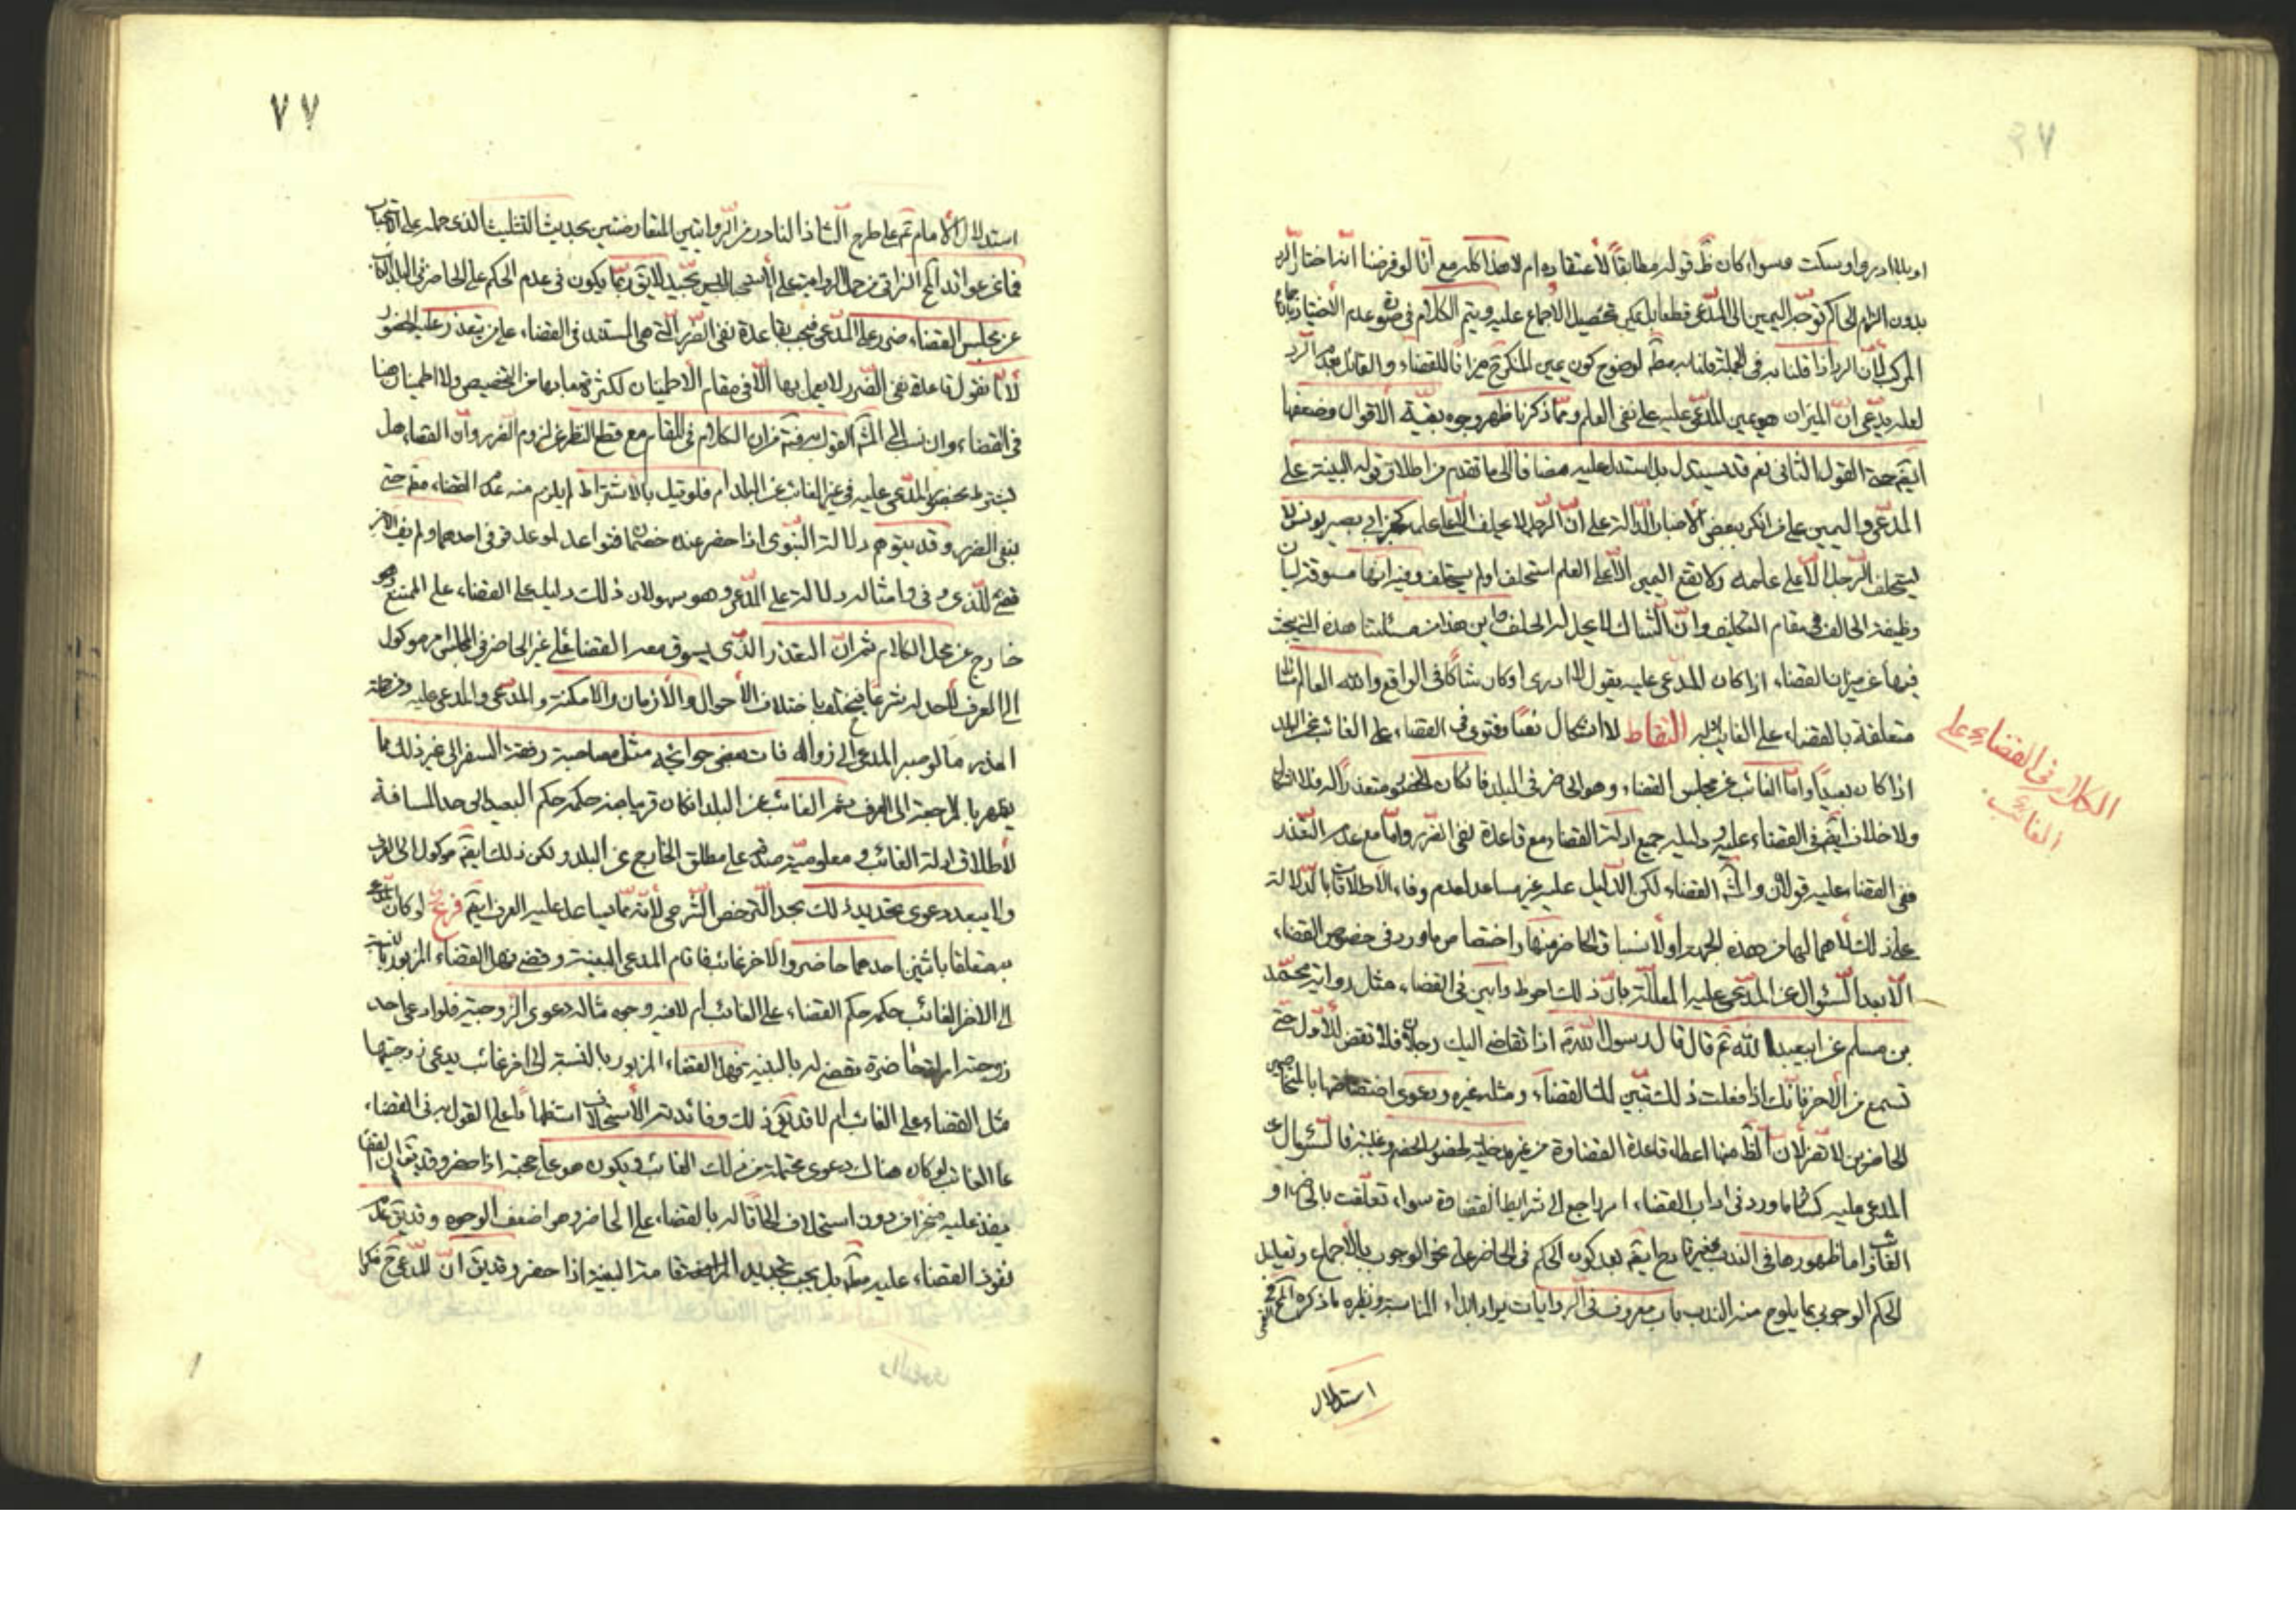 او بلا ادري او يسكت وسواء كان ظ قوله مطابقاً لأعتقاده ام لا هذا كله مع انا لو فرضنا انه اختار الرد
بدون الزام الحاكم توجه اليمين الى المدعى قطعا بل يمكن تحصيل الأجماع عليه ويتم الكلام في صورة عدم الأختيار بالأجماع
المركب لأن الرد اذا قلنا به في الجملة قلنا به مط لوضوح كون يمين المنكر ح ميزانا للقضاء والقائل بعدم الرد
لعله يدعى ان الميزان هو يمين المدعى عليه على نفى العلم ومما ذكرنا ظهر وجوه بقية الأقوال وضعفها
ايضا حجة القول الثانى نعم قد يستدل بل استدل عليه مضافا الى ما تقدم من اطلاق قوله البينة على
المدعى واليمين على من انكر ببعض الأخبار الدالة على ان الرجل لا يحلف الا على علمه كخبر ابى بصير يونس لا
يستحلف الرجل الا على علمه ولا يقع اليمين الا على العلم استحلف او لم يستحلف وفيه انها مسوقة لبيان
وظيفة الحالف في مقام التكليف وان الشاك لا يحل له الحلف واين هذا من مسئلتنا هذه التى يبحث
فيها عن ميزان القضاء اذا كان المدعى عليه يقول لا ادرى او كان شاكا في الواقع والله العالم
متعلقة بالقضاء على الغايب التقاط لا اشكال نصا وفتوى في القضاء على الغائب عن البلد
اذا كان بعيدا واما الغائب عن مجلس القضاء وهو الحاضر في البلد فان كان الحضور متعذرا له فلا اشكال
ولا خلاف ايضا في القضاء عليه ودليله جميع ادلة القضاء مع قاعدة نفى الضرر واما مع عدم التعذر
ففى القضاء عليه قولان والمش القضاء لكن الدليل عليه غير مساعد لعدم وفاء الأطلاقات بالدلالة
على ذلك لأهمالها من هذه الجهة او لأنسباق الحاضر منها واختصاص ما ورد في خصوص القضاء
الا بعد السئوال عن المدعى عليه المعللة بان ذلك احوط وابين في القضاء مثل رواية محمد
بن مسلم عن ابيعبد الله ع قال قال رسول الله ص اذا تقاضى اليك رجلان فلا تقض للأول حتى
تسمع من الأخر فانك اذا فعلت ذلك تبين لك القضاء ومثله غيره ودعوى اختصاصها بالمتخاصمين
الحاضرين لا تضر لأن الظ منها اعطاء قاعدة القضاوة من غير مدخلية لحضور الخصم وغيبته فالسئوال عن
المدعى عليه كسائر ما ورد في اداب القضاء امر راجع الى شرايط القضاوة سواء تعلقت بالحاضر او
الغائب اما ظهورها في الندب فغير قادح ايضا بعد كون الحكم في الحاضر على نحو الوجوب بالأجماع وتعليل
الحكم الوجوبى بما يلوح منه الندب باب معروف في الروايات يراد ابداء المناسبة ونظيره ما ذكره
استدلال
الكلام في القضاء على
الغائب
٧٧
استدلال الأمام ع على طرح الشاذ النادر من الروايتين المتعارضتين بحديث التثليث الذى حمله على الأستحباب
فما عن عوائد المح النراقى من حمل الرواية على الأستحباب ليس بجيد لايق ربما يكون في عدم الحكم على الحاضر في البلد الغائب
عن مجلس القضاء ضرر على المدعى فيجب بقاعدة نفى الضرر التى هى المستند في القضاء على من يتعذر عليه الحضور
لأنا نقول قاعدة نفى الضرر لا يعمل بها الا في مقام الأطمينان لكثرة ما بها من التخصيص ولا اطمينان هنا
في القضاء وان نسب الى المش القول به فتم فان الكلام في المقام مع قطع النظر عن لزوم الضرر وان القضاء هل
يشترط بحضور المدعى عليه في غير الغائب عن البلد ام فلو قيل بالاشتراط لم يلزم منه عدم القضاء مط حتى
ينفى الضرر وقد يتوهم دلالة النبوى اذا حضر عنده خصمان فتواعد الموعد فوفى احدهما ولم يف الأخر
قضى للذى وفى وامثاله دلالة على المدعى وهو سهو لان ذلك دليل على القضاء على الممتنع وهو
خارج عن محل الكلام ثم ان التعذر الذى يسوق معه القضاء على غير الحاضر في المجلس امر موكول
الى العرف لا حد له شرعا فيختلف باختلاف الأحوال والأزمان والأمكنة والمدعى والمدعى عليه ومن جملة
العذر ما لو صبر المدعى الى زواله فات بعض حوائجه مثل مصاحبة رفقة السفر الى غير ذلك مما
يظهر بالمراجعة الى العرف ثم الغائب عن البلد ان كان قريبا منه حكمه حكم البعيد الى حد المسافة
لأطلاق ادلة الغائب ومعلومية صدقه على مطلق الخارج عن البلد ولكن ذلك ايضا موكول الى العرف
ولا يبعد دعوى تحديد ذلك بحد الترخص الشرعى لأنه مما يساعد عليه العرف ايضا فرع لو كان المدعى
به متعلقا باثنين احدهما حاضر والأخر غائب فاقام المدعى البينة وقضى فهل القضاء المزبور بالنسبة
الى الاخر الغائب حكمه حكم القضاء على الغائب ام لا فيه وجوه مثاله دعوى الزوجية فلو ادعى احد
زوجية امرأة حاضرة فقضى له بالبينة فهل القضاء المزبور بالنسبة الى اخر غائب يدعى زوجيتها
مثل القضاء على الغائب ام لا قد يق ذلك وفائدته الأستحلاف استظهارا على القول به في القضاء
على الغائب لو كان هناك دعوى محتملة من ذلك الغائب ويكون هو على حجته اذا حضر وقد يق ان القضاء
ينفذ عليه من دون استحلاف الحاقا له بالقضاء على الحاضر وهو اضعف الوجوه وقد يق عدم
نفوذ القضاء عليه مط بل يجب تجديد المرافعة واقامة البينة اذا حضر وقد يق ان للمدعى ح